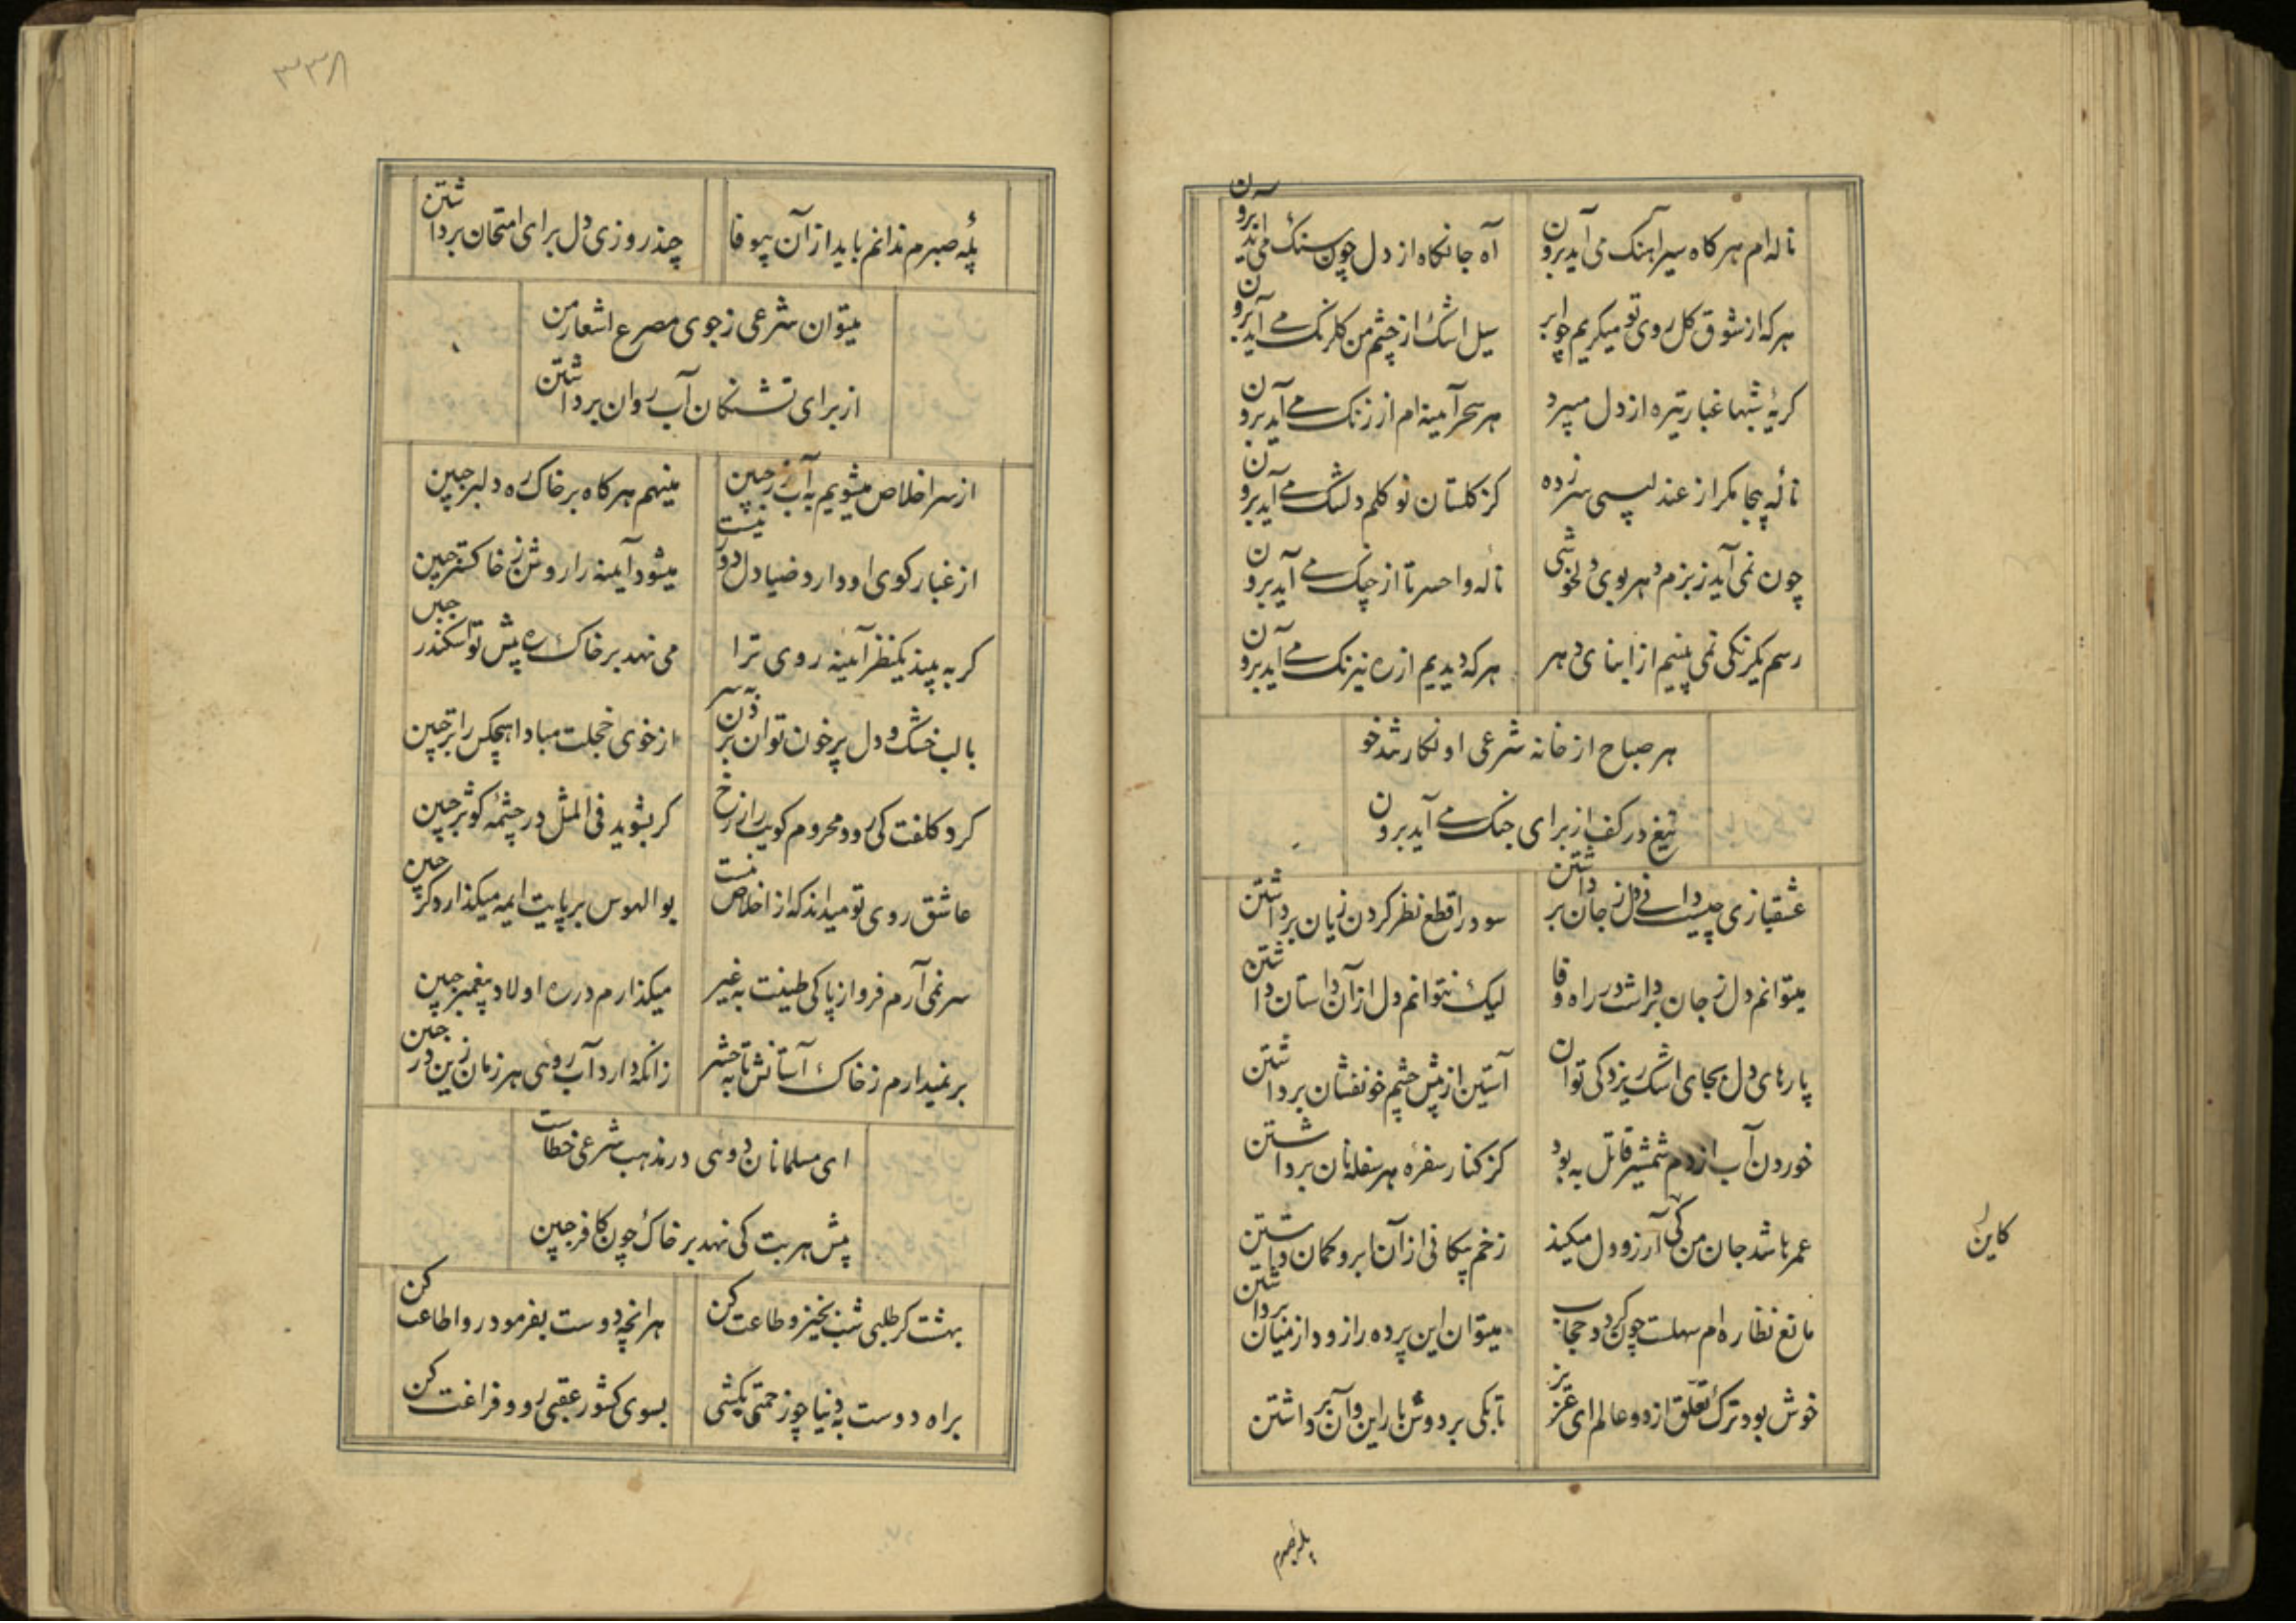 ناله‌ام هرکاه سیراهنک می آید برون
آه جانکاه از دل چون سنک می آید برون
هرکه از شوق کل روی تو میکریم چو ابر
سیل اشک از چشم من کلرنک می آید برون
کریهٔ شبها غبار تیره از دل میبرد
هر سحر آیینه ام از زنک می آید برون
نالهٔ بیجا مکر از عندلیبی سر زده
کز کلستان نو کلم دلتنک می آید برون
چون نمی آید ز بزم دهر بوی دلخوشی
ناله واحسرتا از چنک می آید برون
رسم یکرنکی نمی بینیم از ابنای دهر
هرکه دیدیم از ره نیرنک می آید برون
هر صباح از خانه شرعی او نکار تندخو
تیغ در کف از برای جنک می آید برون
عشقبازی چیست دانی دل ز جان برداشتن
سود را قطع نظر کردن زیان برداشتن
میتوانم دل ز جان برداشت در راه وفا
لیک نتوانم دل از آن داستان داشتن
پارهای دل بجای اشک ریزد کی توان
آستین از پیش چشم خونفشان برداشتن
خوردن آب از دم شمشیر قاتل به بود
کز کنار سفره هر سفله نان برداشتن
عمر باشد جان من کی آرزو دل میکند
زخم پیکانی از آن ابرو کمان داشتن
مانع نظاره ام سهلست چون کردد حجاب
میتوان این پرده را زود از میان برداشتن
خوش بود ترک تعلق از دو عالم ای عزیز
تا بکی بر دوش بار این و آن برداشتن
کاین
پله صبرم
۳۳۸
پلهٔ صبرم ندانم باید از آن بیوفا
چند روزی دل برای امتحان برداشتن
میتوان شرعی ز جوی مصرع اشعار من
از برای تشنکان آب روان برداشتن
از سر اخلاص میشویم به آب زر جبین
مینهم هرکاه بر خاک ره دلبر جبین
از غبار کوی او دارد ضیا دل دور نیست
میشود آیینه را روشن ز خاکستر جبین
کر به بیند یکنظر آیینه روی ترا
می نهد بر خاک ره پیش تو اسکندر جبین
با لب خشک و دل پر خون توان بردن بسر
از خوی خجلت مبادا هیچکس را تر جبین
کرد کلفت کی رود محروم کویت را ز رخ
کر بشوید فی المثل در چشمه کوثر جبین
عاشق روی تو میداند که از اخلاص نیست
بوالهوس بر پایت ار میکذارد کر جبین
سر نمی آرم فرو از پاکی طینت به غیر
میکذارم در ره اولاد پیغمبر جبین
بر نمیدارم ز خاک آستانش تا به حشر
زانکه دارد آب روی هر زمان زین در جبین
ای مسلمانان دوروی در مذهب شرعی خطاست
پیش هر بت کی نهد بر خاک چون کافر جبین
بهشت کر طلبی شب بخیز و طاعت کن
هر انچه دوست بفرمود رو اطاعت کن
براه دوست به دنیا چو زحمتی بکشی
بسوی کشور عقبی رو و فراغت کن